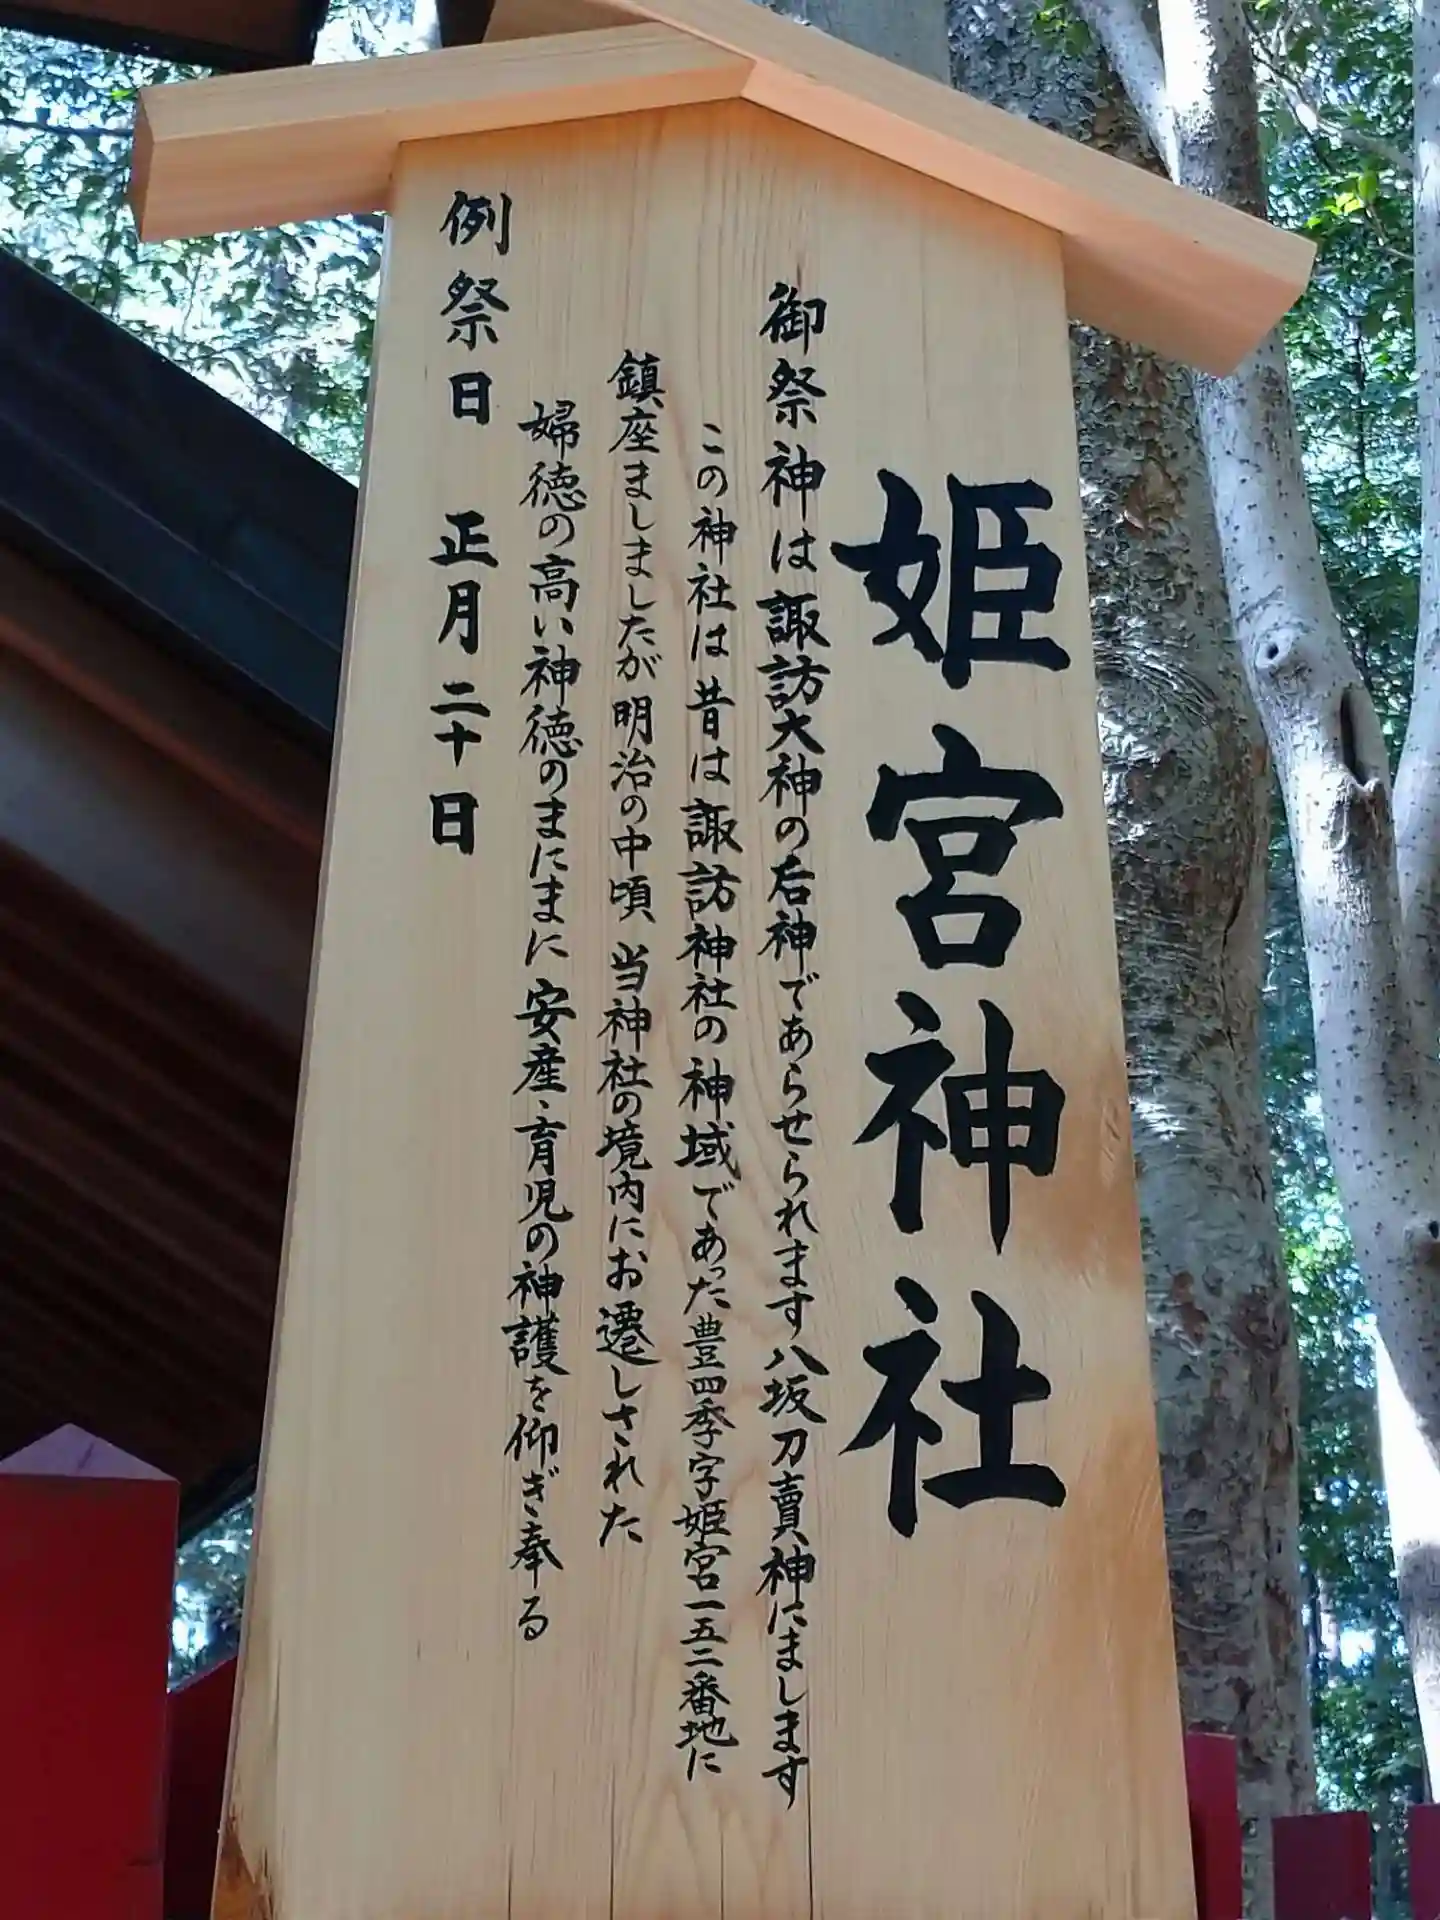 姫宮神社
御祭神は諏訪大神の后神であらせられます八坂刀賣神にまします
この神社は昔は諏訪神社の神域であった豊四季字姫宮一五二番地に
鎮座ましましたが明治の中頃当神社の境内にお遷しされた
婦徳の高い神徳のまにまに安産、育児の神護を仰ぎ奉る
例祭日 正月二十日